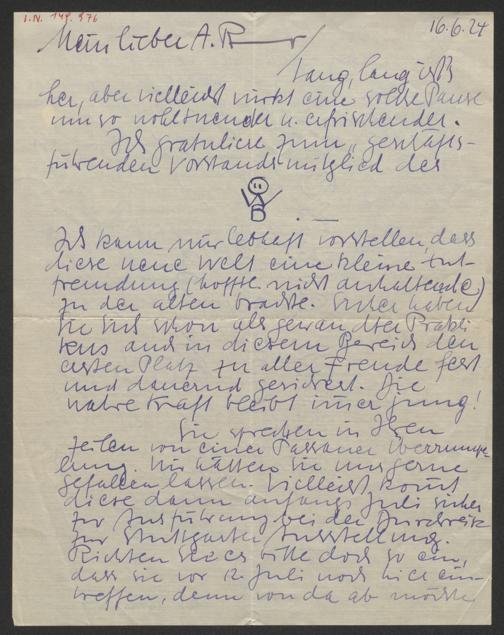 I.N. 149.976
16.6.24
Mein lieber A. R
Lang, lang ists
her, aber vielleicht wirkt eine solche Pause
um so wohltuender u. erfrischender.
Ich gratuliere zum „geschäfts-
führenden Vorstandsmitglied des
W
B
Ich kann mir lebhaft vorstellen, dass
diese neue Welt eine kleine Ent-
fremdung (hoffte nicht anhaltende)
zu der alten brachte. Sicher haben
Sie sich schon als gewandter Prakti-
kus auch in diesem Bereich den
ersten Platz zu aller Freude fest
und dauernd gesichert. Die
wahre Kraft bleibt immer jung!
Sie sprechen in Ihren
Zeilen von einer Passauer Überrumpe-
lung. Wir hätten sie uns gerne
gefallen lassen. Vielleicht kommt
diese dann anfangs Juli sicher
zur Ausführung bei der Durchreise
zur Stuttgarter Ausstellung.
Richten Sie es bitte doch so ein,
dass Sie vor 12. Juli noch hier ein-
treffen, denn von da ab möchte